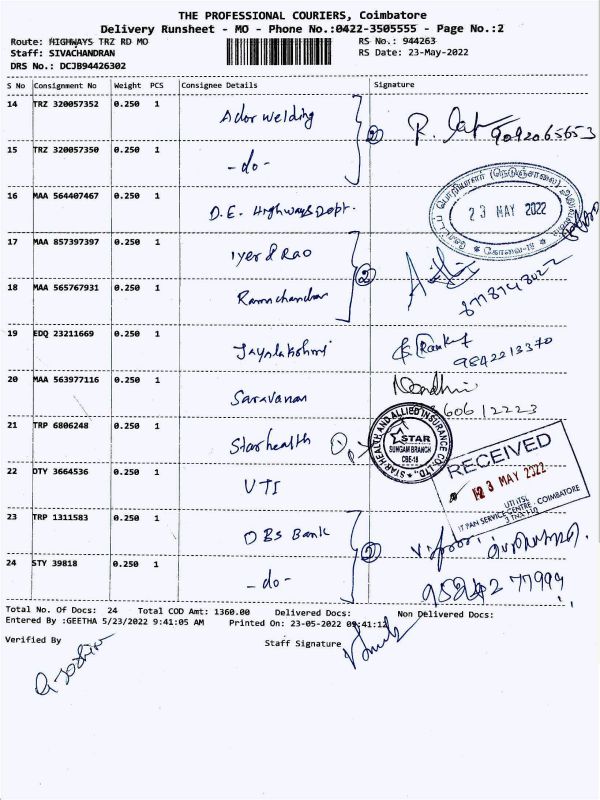 THE PROFESSIONAL COURIERS, Coimbatore
Delivery Runsheet - MO - Phone No.:0422-3505555 - Page No.:2
Route: HIGHWAYS TRZ RD MO RS No.: 944263
Staff: SIVACHANDRAN RS Date: 23-May-2022
DRS No.: DCJB94426302
S No Consignment No Weight PCS Consignee Details Signature
14 TRZ 320057352 0.250 1 Ador welding 2 9092065653
15 TRZ 320057350 0.250 1 -do-
16 MAA 564407467 0.250 1 D.E. Highways Dept.
23 MAY 2022
கோவை-18
17 MAA 857397397 0.250 1 Iyer & Rao 2
18 MAA 565767931 0.250 1 Ramchandar
19 EDQ 23211669 0.250 1 Jayalakshmi 9842213370
20 MAA 563977116 0.250 1 Saravanan Nandhini
60612223
21 TRP 6806248 0.250 1 Star health
STAR HEALTH AND ALLIED INSURANCE CO. LTD.
STAR
SUNGAM BRANCH
CBE-18
RECEIVED
23 MAY 2022
UTI ITSL
IT PAN SERVICE CENTRE, COIMBATORE
22 DTY 3664536 0.250 1 UTI
23 TRP 1311583 0.250 1 DBS Bank 2
24 STY 39818 0.250 1 -do-
Total No. Of Docs: 24 Total COD Amt: 1360.00 Delivered Docs: Non Delivered Docs:
Entered By :GEETHA 5/23/2022 9:41:05 AM Printed On: 23-05-2022 09:41:12
Verified By Staff Signature